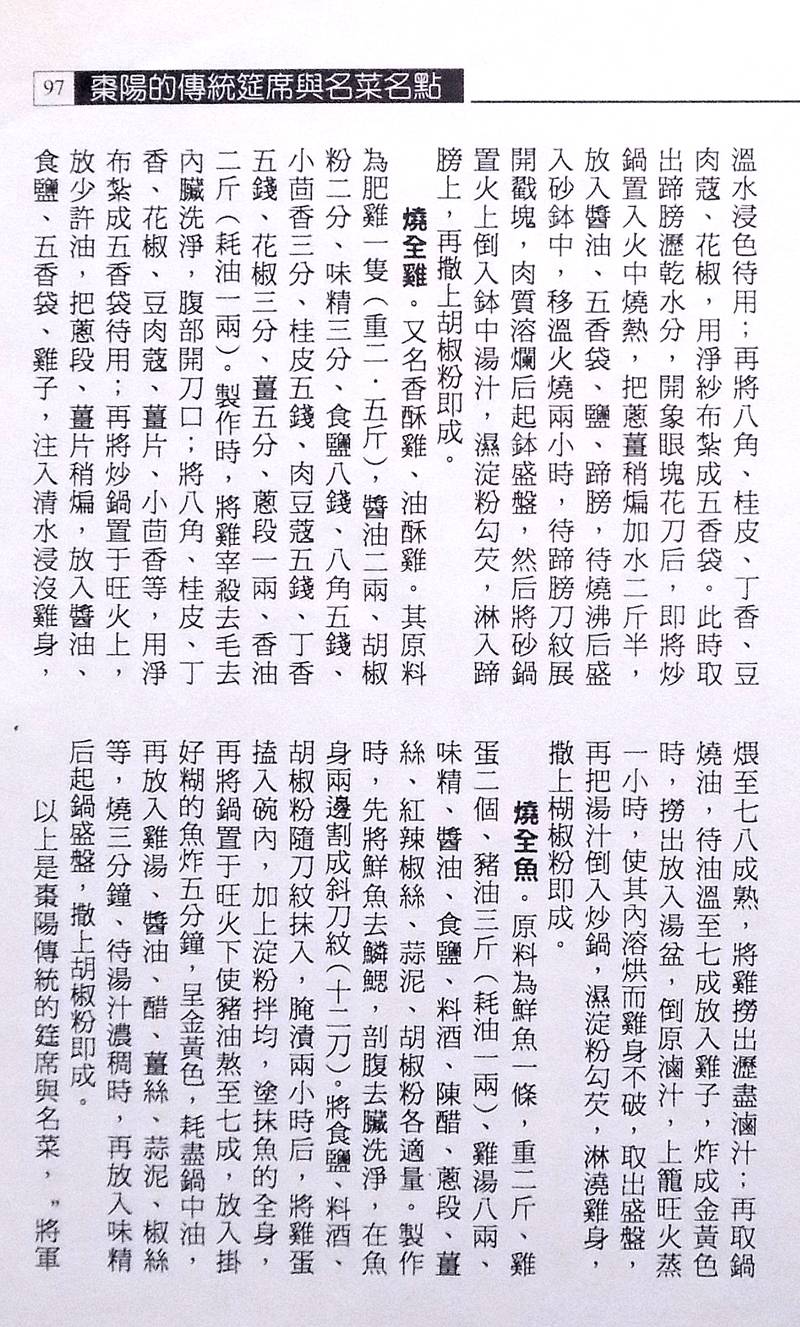 97 棗陽的傳統筵席與名菜名點
溫水浸色待用；再將八角、桂皮、丁香、豆
肉蔻、花椒，用淨紗布紮成五香袋。此時取
出蹄膀瀝乾水分，開象眼塊花刀后，即將炒
鍋置入火中燒熱，把蔥薑稍煸加水二斤半，
放入醬油、五香袋、鹽、蹄膀，待燒沸后盛
入砂鉢中，移溫火燒兩小時，待蹄膀刀紋展
開戳塊，肉質溶爛后起鉢盛盤，然后將砂鍋
置火上倒入鉢中湯汁，濕淀粉勾芡，淋入蹄
膀上，再撒上胡椒粉即成。
燒全雞。又名香酥雞、油酥雞。其原料
為肥雞一隻（重二．五斤），醬油二兩、胡椒
粉二分、味精三分、食鹽八錢、八角五錢、
小茴香三分、桂皮五錢、肉豆蔻五錢、丁香
五錢、花椒三分、薑五分、蔥段一兩、香油
二斤（耗油一兩）。製作時，將雞宰殺去毛去
內臟洗淨，腹部開刀口；將八角、桂皮、丁
香、花椒、豆肉蔻、薑片、小茴香等，用淨
布紮成五香袋待用；再將炒鍋置于旺火上，
放少許油，把蔥段、薑片稍煸，放入醬油、
食鹽、五香袋、雞子，注入清水浸沒雞身，
煨至七八成熟，將雞撈出瀝盡滷汁；再取鍋
燒油，待油溫至七成放入雞子，炸成金黃色
時，撈出放入湯盆，倒原滷汁，上籠旺火蒸
一小時，使其內溶烘而雞身不破，取出盛盤，
再把湯汁倒入炒鍋，濕淀粉勾芡，淋澆雞身，
撒上楜椒粉即成。
燒全魚。原料為鮮魚一條，重二斤、雞
蛋二個、豬油三斤（耗油一兩）、雞湯八兩、
味精、醬油、食鹽、料酒、陳醋、蔥段、薑
絲、紅辣椒絲、蒜泥、胡椒粉各適量。製作
時，先將鮮魚去鱗鰓，剖腹去臟洗淨，在魚
身兩邊割成斜刀紋（十二刀）。將食鹽、料酒、
胡椒粉隨刀紋抹入，腌漬兩小時后，將雞蛋
搕入碗內，加上淀粉拌均，塗抹魚的全身，
再將鍋置于旺火下使豬油熬至七成，放入掛
好糊的魚炸五分鐘，呈金黃色，耗盡鍋中油，
再放入雞湯、醬油、醋、薑絲、蒜泥、椒絲
等，燒三分鐘、待湯汁濃稠時，再放入味精
后起鍋盛盤，撒上胡椒粉即成。
以上是棗陽傳統的筳席與名菜，〞將軍